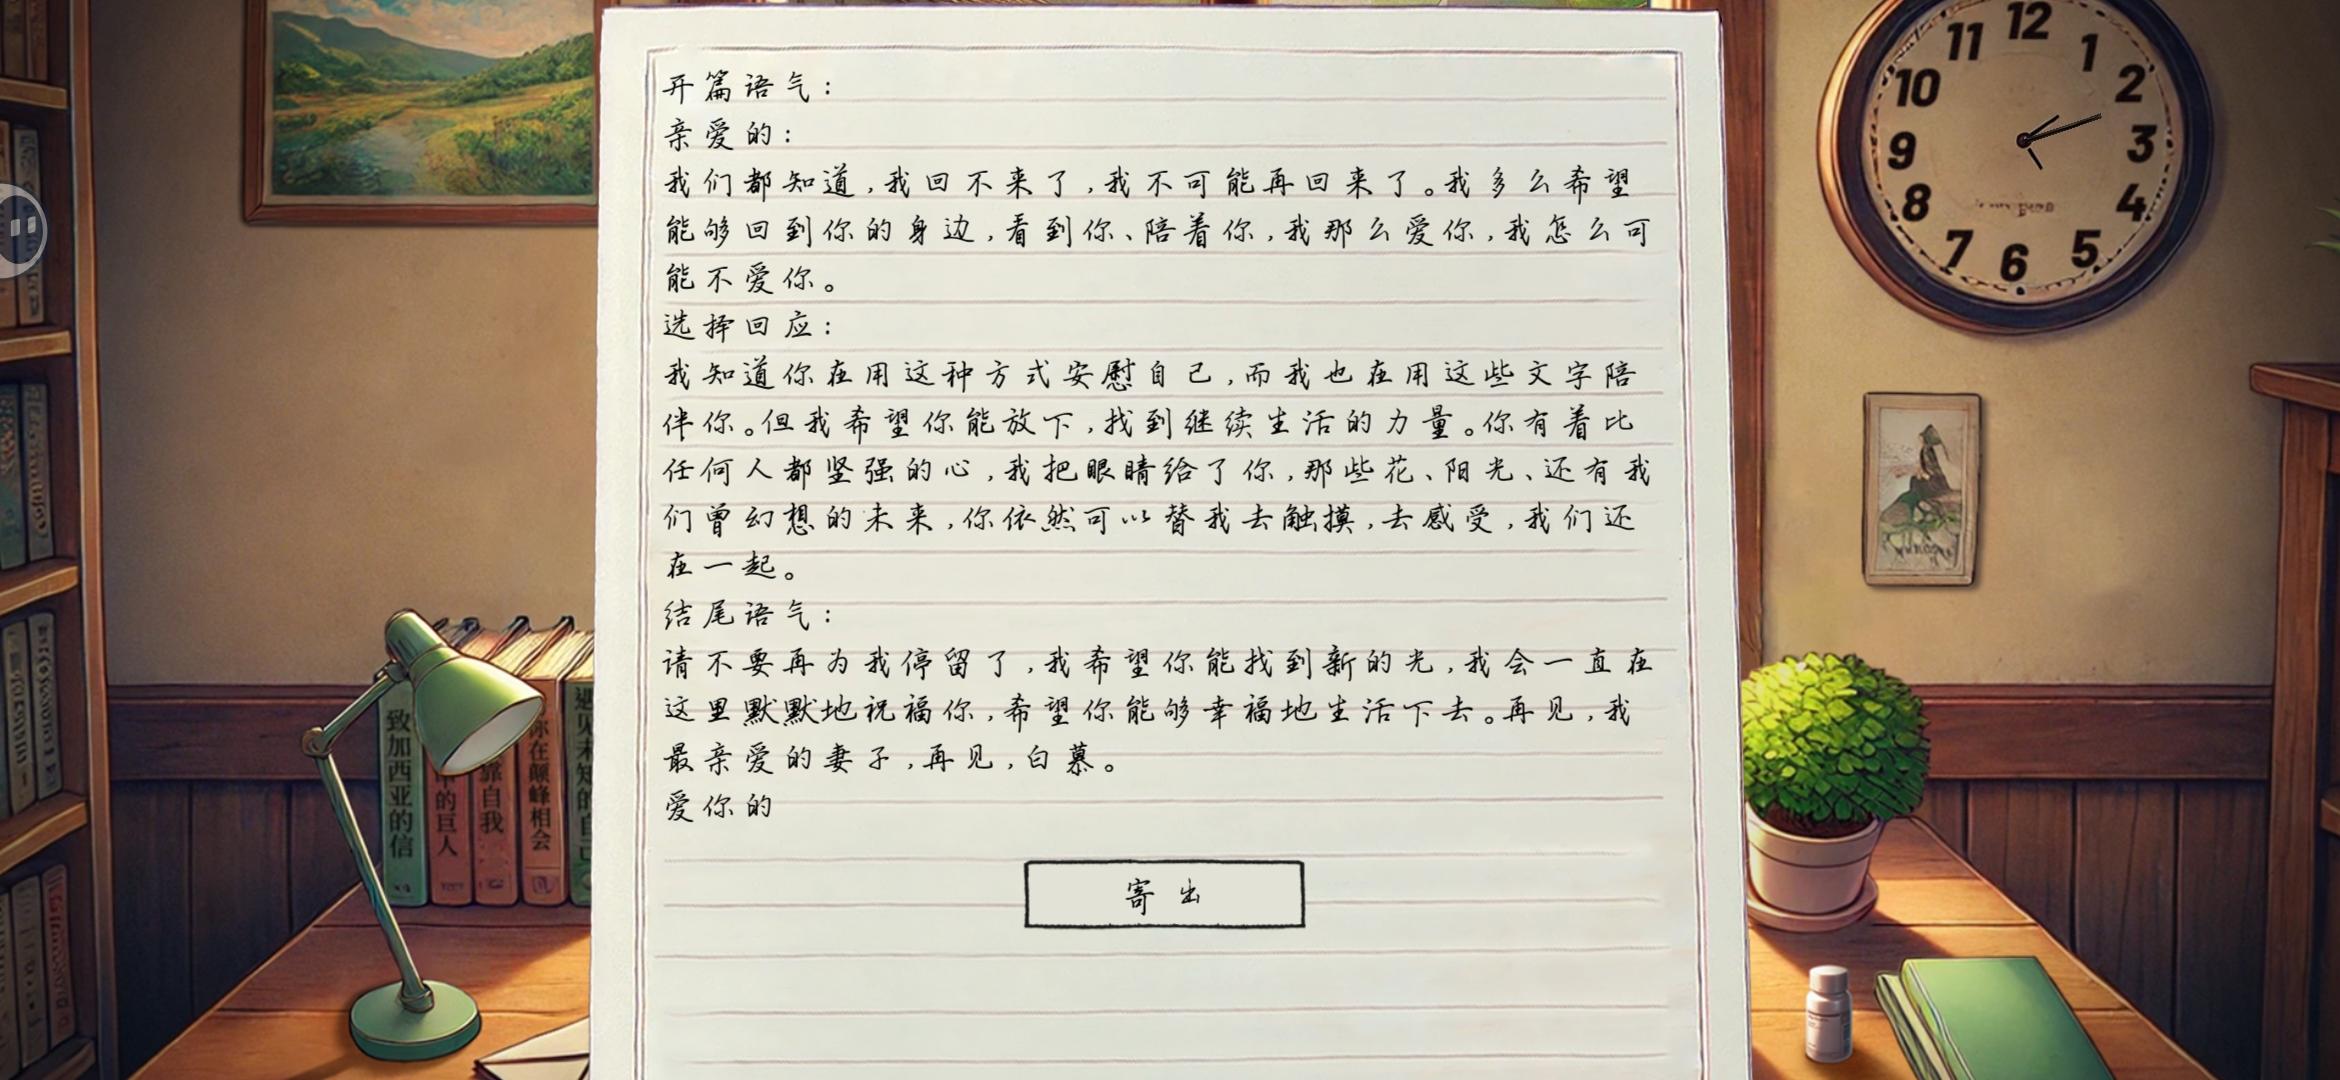 开篇语气：
亲爱的：
我们都知道，我回不来了，我不可能再回来了。我多么希望
能够回到你的身边，看到你、陪着你，我那么爱你，我怎么可
能不爱你。
选择回应：
我知道你在用这种方式安慰自己，而我也在用这些文字陪
伴你。但我希望你能放下，找到继续生活的力量。你有着比
任何人都坚强的心，我把眼睛给了你，那些花、阳光、还有我
们曾幻想的未来，你依然可以替我去触摸，去感受，我们还
在一起。
结尾语气：
请不要再为我停留了，我希望你能找到新的光，我会一直在
这里默默地祝福你，希望你能够幸福地生活下去。再见，我
最亲爱的妻子，再见，白慕。
爱你的
寄出
致加西亚的信
中的巨人
靠自我
你在颠峰相会
遇见未知的自己
12
1
2
3
4
5
6
7
8
9
10
11